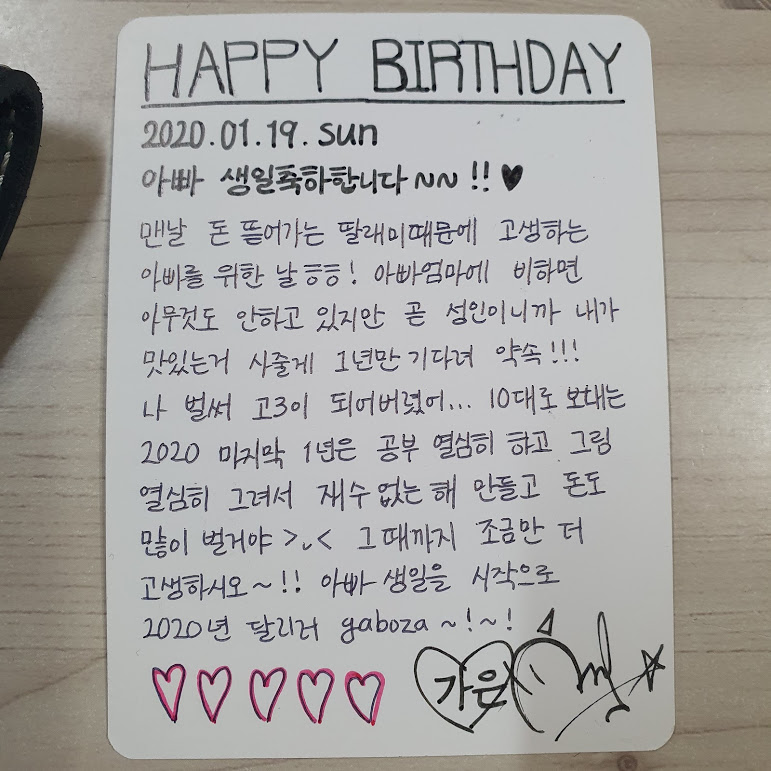 HAPPY BIRTHDAY
2020.01.19. sun
아빠 생일축하합니다~~!!♥
맨날 돈 뜯어가는 딸래미때문에 고생하는
아빠를 위한 날ㅎㅎ! 아빠엄마에 비하면
아무것도 안하고 있지만 곧 성인이니까 내가
맛있는거 사줄게 1년만 기다려 약속!!!
나 벌써 고3이 되어버렸어... 10대로 보내는
2020 마지막 1년은 공부 열심히 하고 그림
열심히 그려서 재수 없는 해 만들고 돈도
많이 벌거야 >_< 그때까지 조금만 더
고생하시오~!! 아빠 생일을 시작으로
2020년 달리러 yaboza~!~!
♡♡♡♡♡ 가은